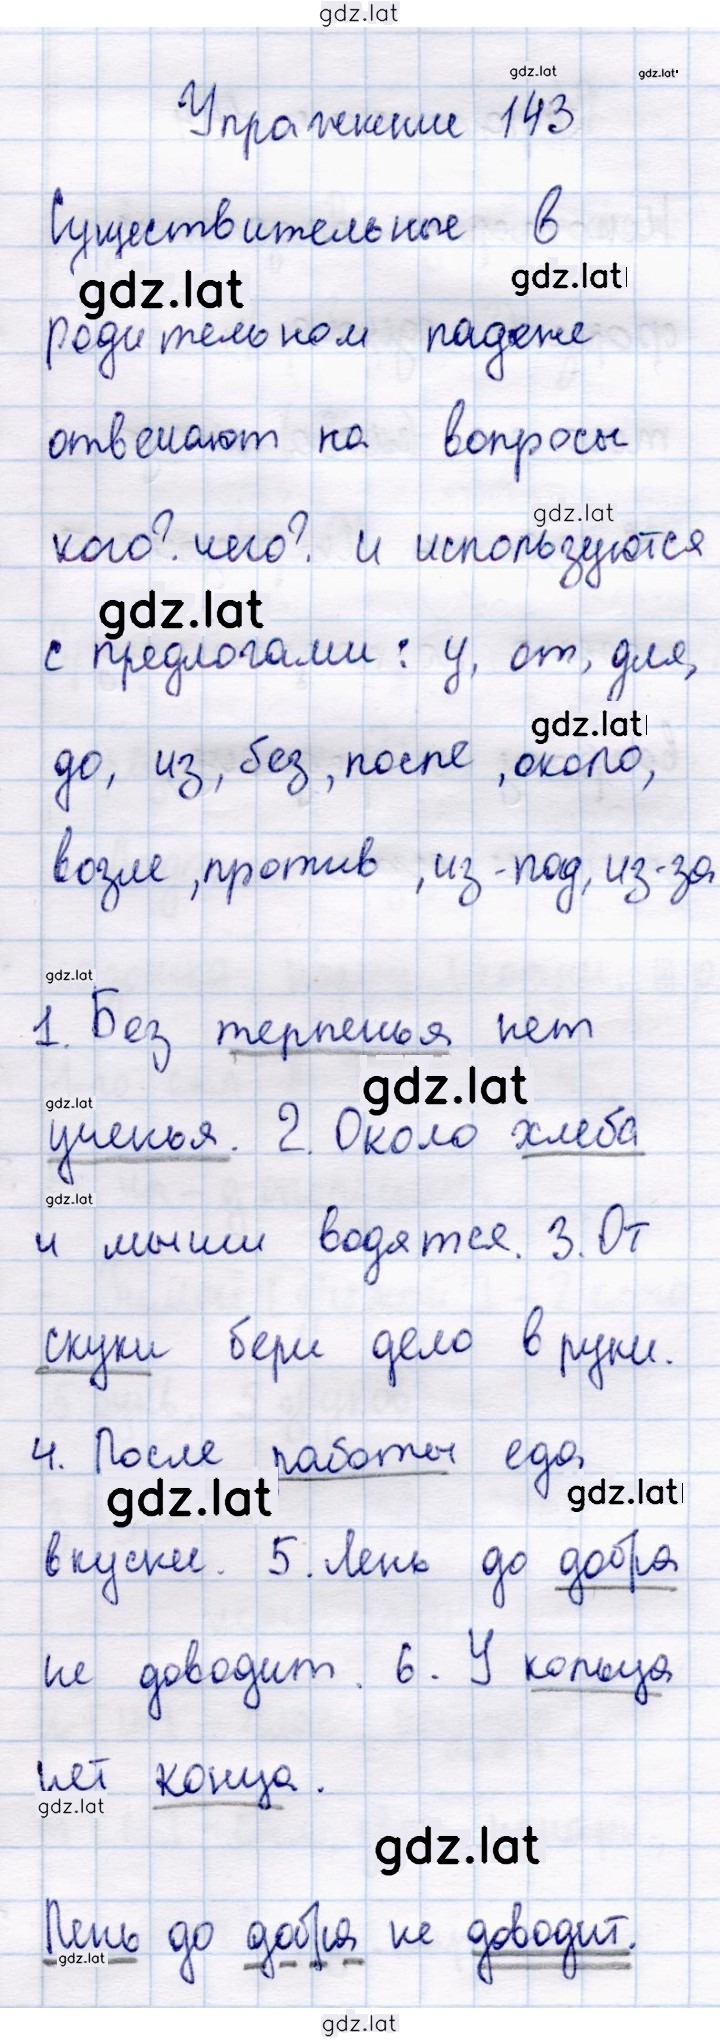 gdz.lat
gdz.lat gdz.lat
Упражнение 143
Существительные в
gdz.lat gdz.lat
родительном падеже
отвечают на вопросы
gdz.lat
кого? чего? и используются
gdz.lat
с предлогами: у, от, для,
gdz.lat
до, из, без, после, около,
возле, против, из-под, из-за
gdz.lat
1. Без терпенья нет
gdz.lat
gdz.lat
ученья. 2. Около хлеба
gdz.lat
и мыши водятся. 3. От
скуки бери дело в руки.
4. После работы еда
gdz.lat gdz.lat
вкуснее. 5. Лень до добра
не доводит. 6. У кольца
нет конца.
gdz.lat
gdz.lat
Лень до добра не доводит.
gdz.lat
gdz.lat